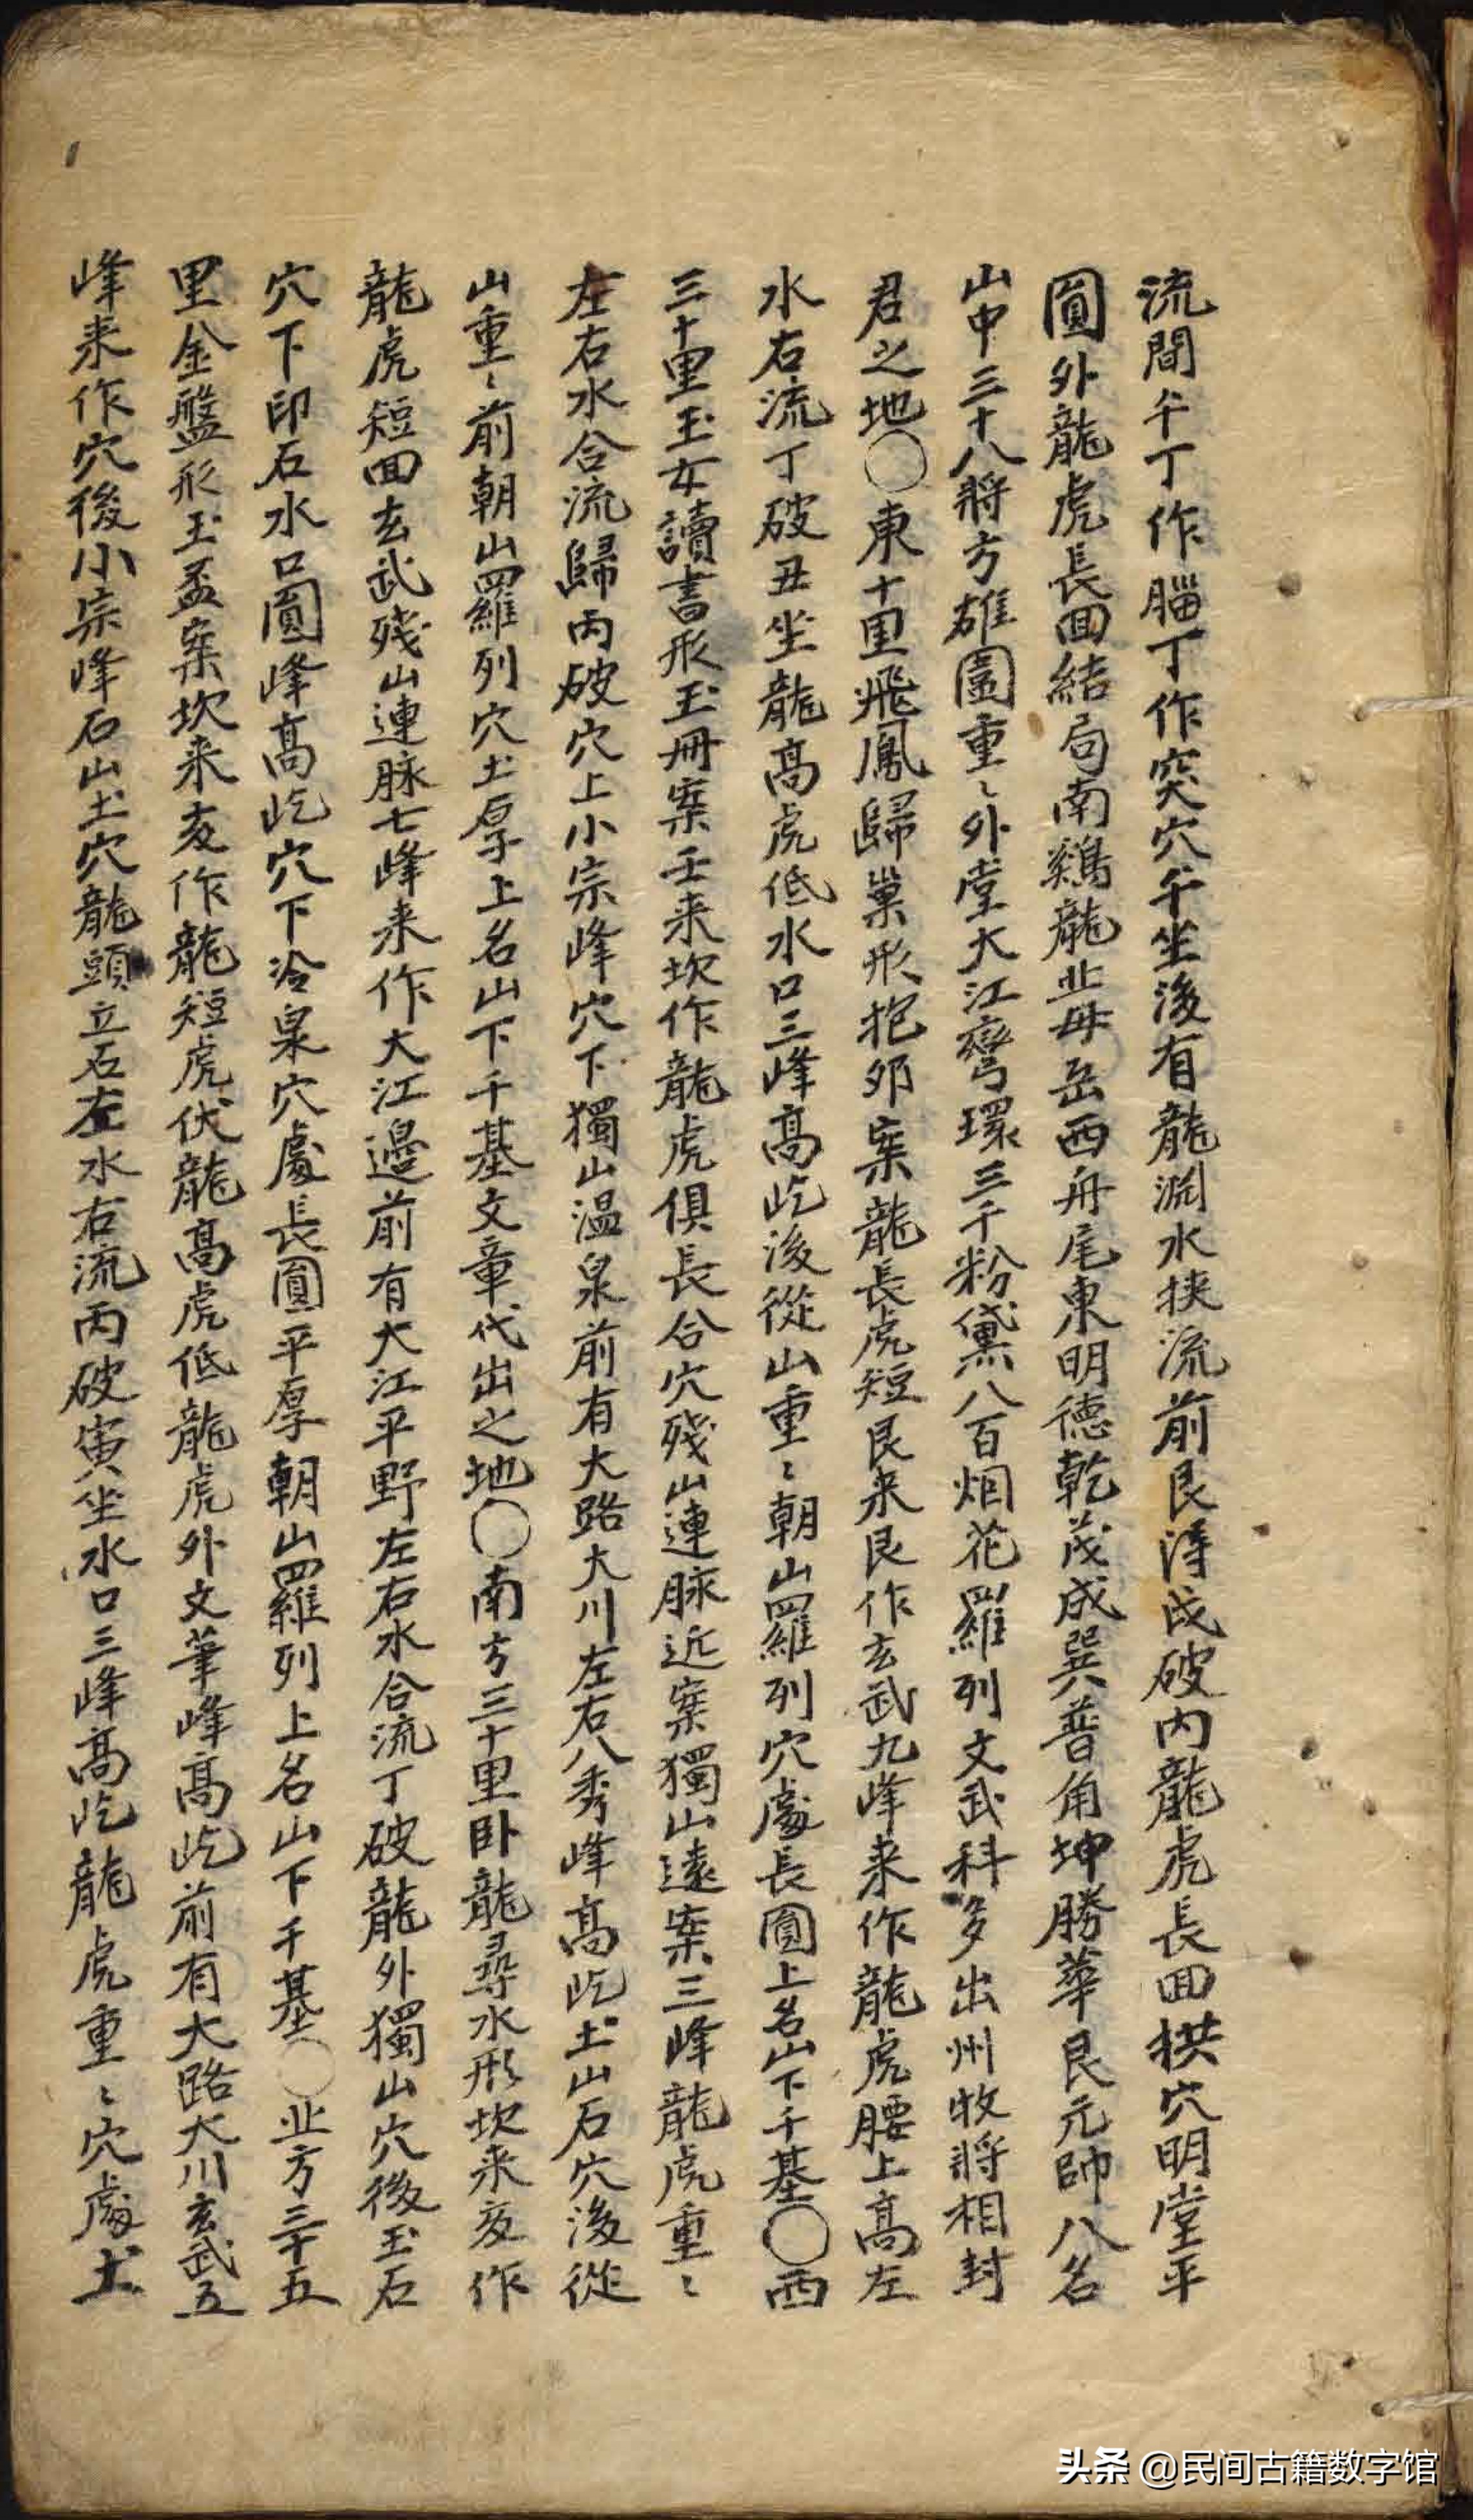 流間午丁作腦丁作突穴午坐後有龍淵水挾流前艮得戌破内龍虎長回拱穴明堂平
圓外龍虎長回結局南鷄龍北母岳西舟尾東明德乾茂成巽普角坤勝華艮元帥八名
山中三十八將方雄園重〻外堂大江弯環三千粉黛八百烟花羅列文武科多出州牧將相封
君之地〇東十里飛鳳歸巢形抱卵案龍長虎短艮来艮作玄武九峰来作龍虎腰上高左
水右流丁破丑坐龍高虎低水口三峰高屹後從山重〻朝山羅列穴處長圓上名山下千基〇西
三十里玉女讀書形玉冊案壬来坎作龍虎俱長合穴殘山連脉近案獨山遠案三峰龍虎重〻
左右水合流歸丙破穴上小宗峰穴下獨山温泉前有大路大川左右八秀峰高屹土山石穴後從
山重〻前朝山羅列穴土厚上名山下千基文章代出之地〇南方三十里卧龍尋水形坎来亥作
龍虎短回玄武殘山連脉七峰来作大江邊前有大江平野左右水合流丁破龍外獨山穴後玉石
穴下印石水口圓峰高屹穴下冷泉穴處長圓平厚朝山羅列上名山下千基〇北方三十五
里金盤形玉盃案坎来亥作龍短虎伏龍高虎低龍虎外文筆峰高屹前有大路大川玄武五
峰来作穴後小宗峰石山土穴龍頭立石左水右流丙破寅坐水口三峰高屹龍虎重〻穴處土
头条 @民间古籍数字馆